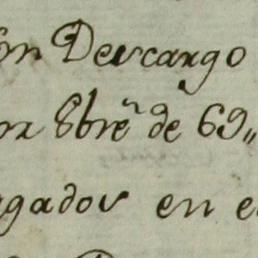 on Descargo
or Ebreº de 69,,
gador en e